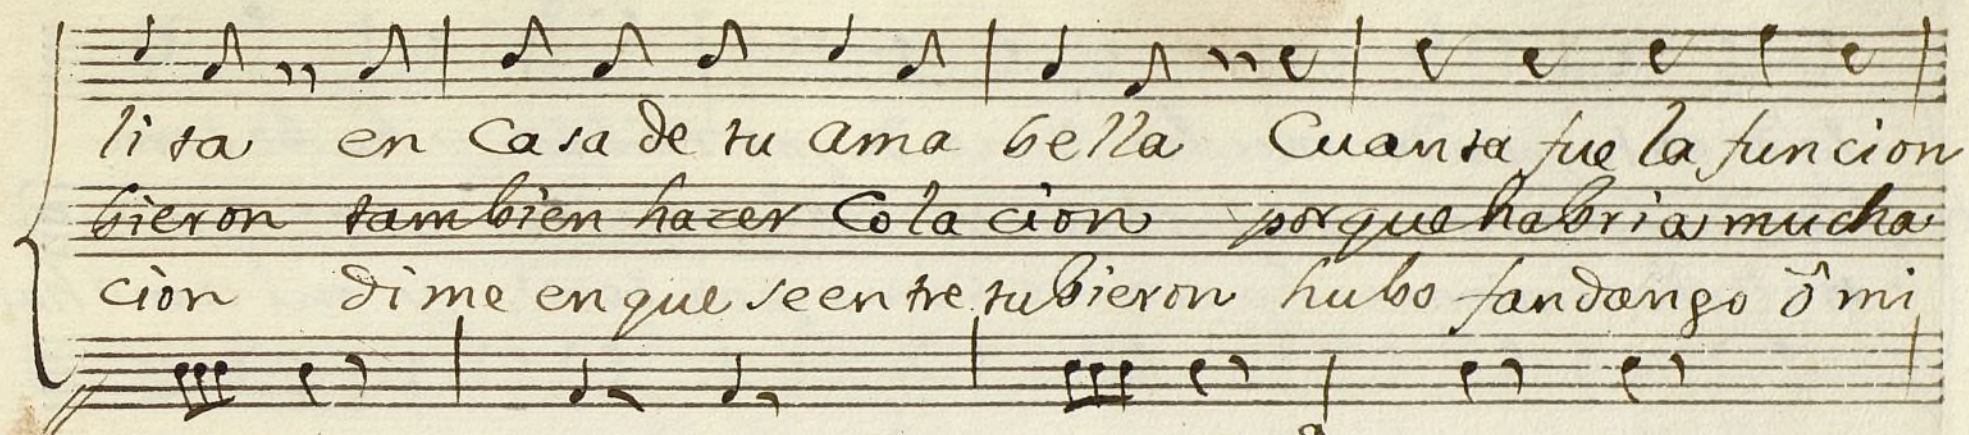 li ta en Casa de tu ama bella Cuanta fue la funcion
bieron tambien hazer Cola cion porque habria mucha
cion dime en que se entre tubieron hubo fandango ô mi